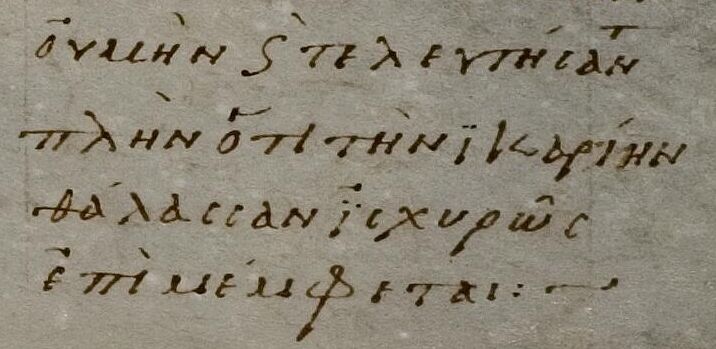 ὀυμὴν ϛ τελευτήσαν
πλὴν ὅτι τὴν ϊκαρίην
θάλασσαν ἰσχυρῶς
ἐπιμέμφεται:~